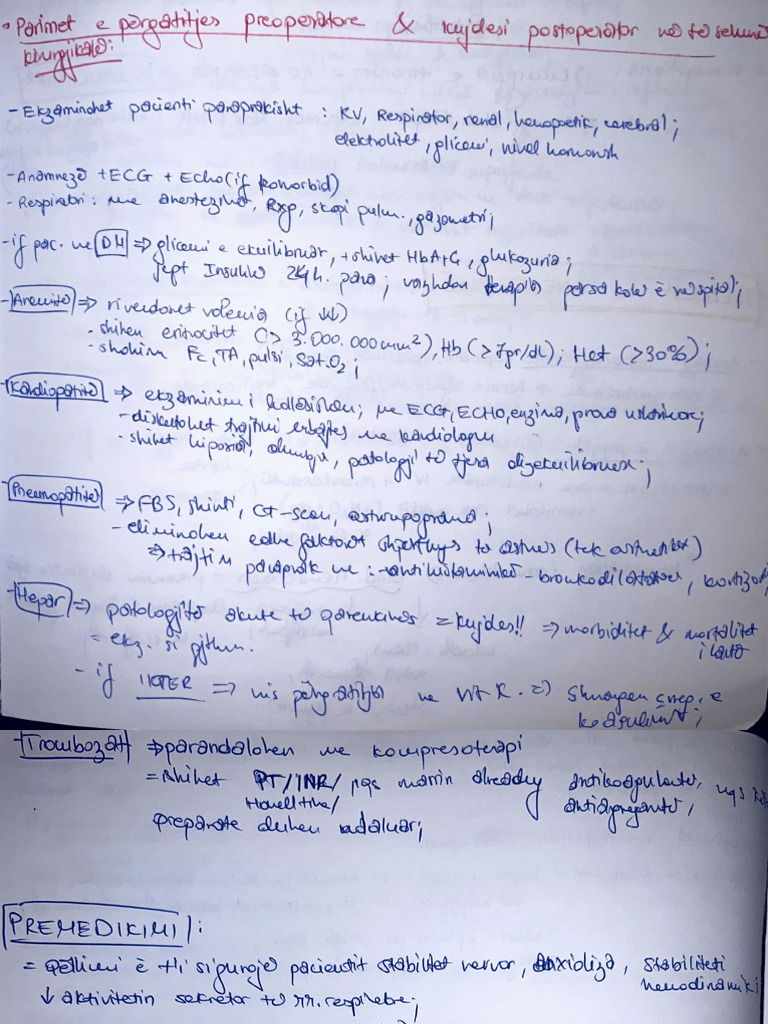 • Parimet e përgatitjes preoperatore & kujdesi postoperator në të sëmurë
kirurgjikalë:
- Ekzaminohet pacienti paraprakisht : KV, Respirator, renal, hemopoetik, cerebral;
elektrolitet, glicemi, nivel hormonesh
- Anamnezë + ECG + Echo (if komorbid)
- Respiratori : me anestezinë, Rxp, skopi pulm., gazometri;
- if pac. me DM ⇒ glicemi e ekuilibruar, + shihet HbA1C, glukozuria;
jept Insulinë 24h. para; vazhdon terapia persa kohë ë në spital;
- Anemitë ⇒ rivendoset volemia (if ↓↓)
- shihen eritrocitet (> 3.000.000 mm²), Hb (>7gr/dl); Hct (>30%);
- shohim Fc, TA, pulsi, Sat.O₂;
- Kardiopatitë ⇒ ekzaminimi i hollësishëm; me ECG, ECHO, enzima, prova ushtrimore;
- diskutohet trajtimi mbajtës me kardiologun
- shihet hipoxia, dhimbje, patologji të tjera dizekuilibruese;
- Pneumopatitë ⇒ FBS, shinti, CT-scan,
- eliminohen edhe faktorët shpërthyes të astmës (tek astmatikët)
⇒ trajtim paraprak me : - antihistaminikë - bronkodilatatorë, kortizon;
- Hepar ⇒ patologjitë akute të parenkimës = kujdes!! ⇒ morbiditet & mortalitet
i lartë
= ekz. si gjithm.
- if IKTER ⇒ nis përgatitja me Vit K. ⇒ shmangen çrreg. e
koagulimit;
- Trombozat ⇒ parandalohen me kompresoterapi
= Shihet PT/INR/ nqs marrin already antikoagulantë, nqs
Howell time/ antiagregantë,
preparate duhen ndaluar;
PREMEDIKIMI:
= Qëllimi ë t'i sigurojë pacientit stabilitet nervor, anxioliza, stabiliteti
hemodinamik;
↓ aktivitetin sekretor të rr. respiratore;